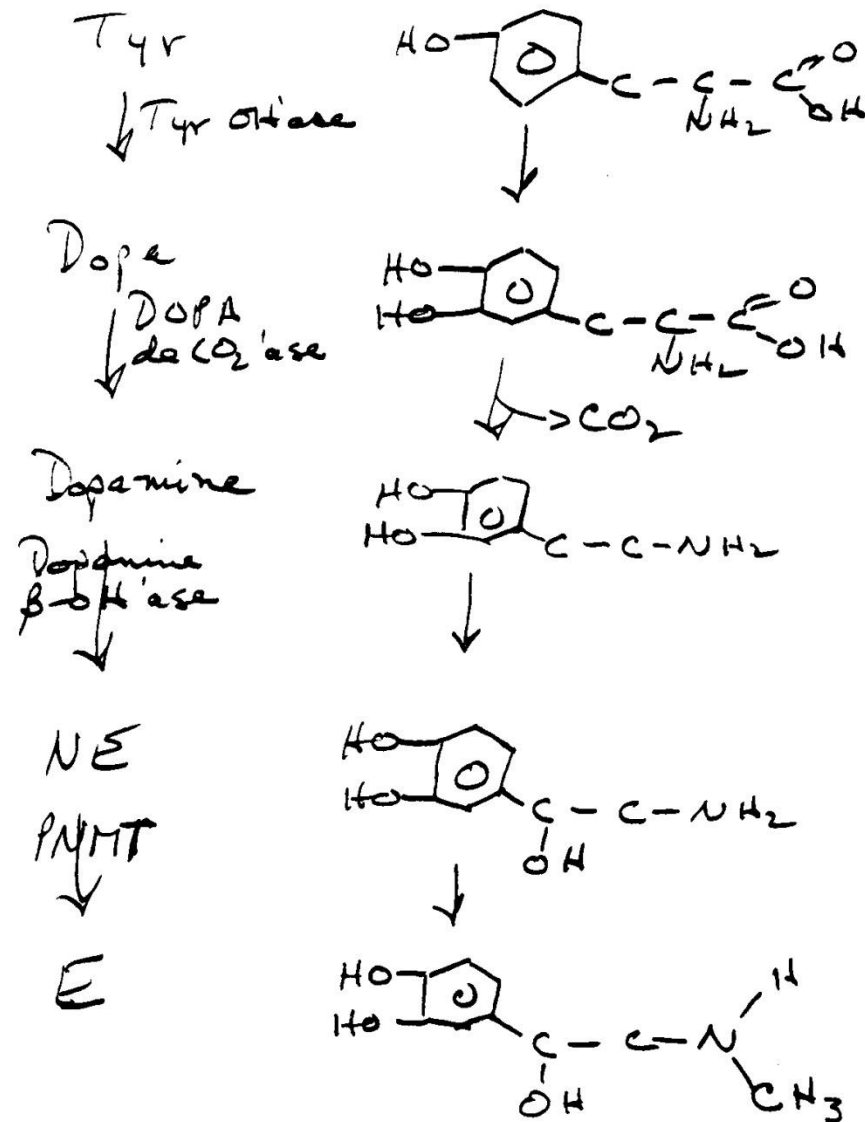 Tyr
Tyr OH'ase
Dopa
DOPA
deCO2'ase
Dopamine
Dopamine
β-OH'ase
NE
PNMT
E
HO
C - C - C = O
NH2
OH
HO
HO
C - C - C = O
NH2
OH
CO2
HO
HO
C - C - NH2
HO
HO
C - C - NH2
OH
HO
HO
H
C - C - N
OH
CH3